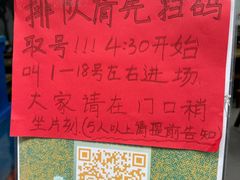 排队请先扫码
取号!!! 4:30开始
叫1-18号左右进场
大家请在门口稍
坐片刻.(5人以上需提前告知)